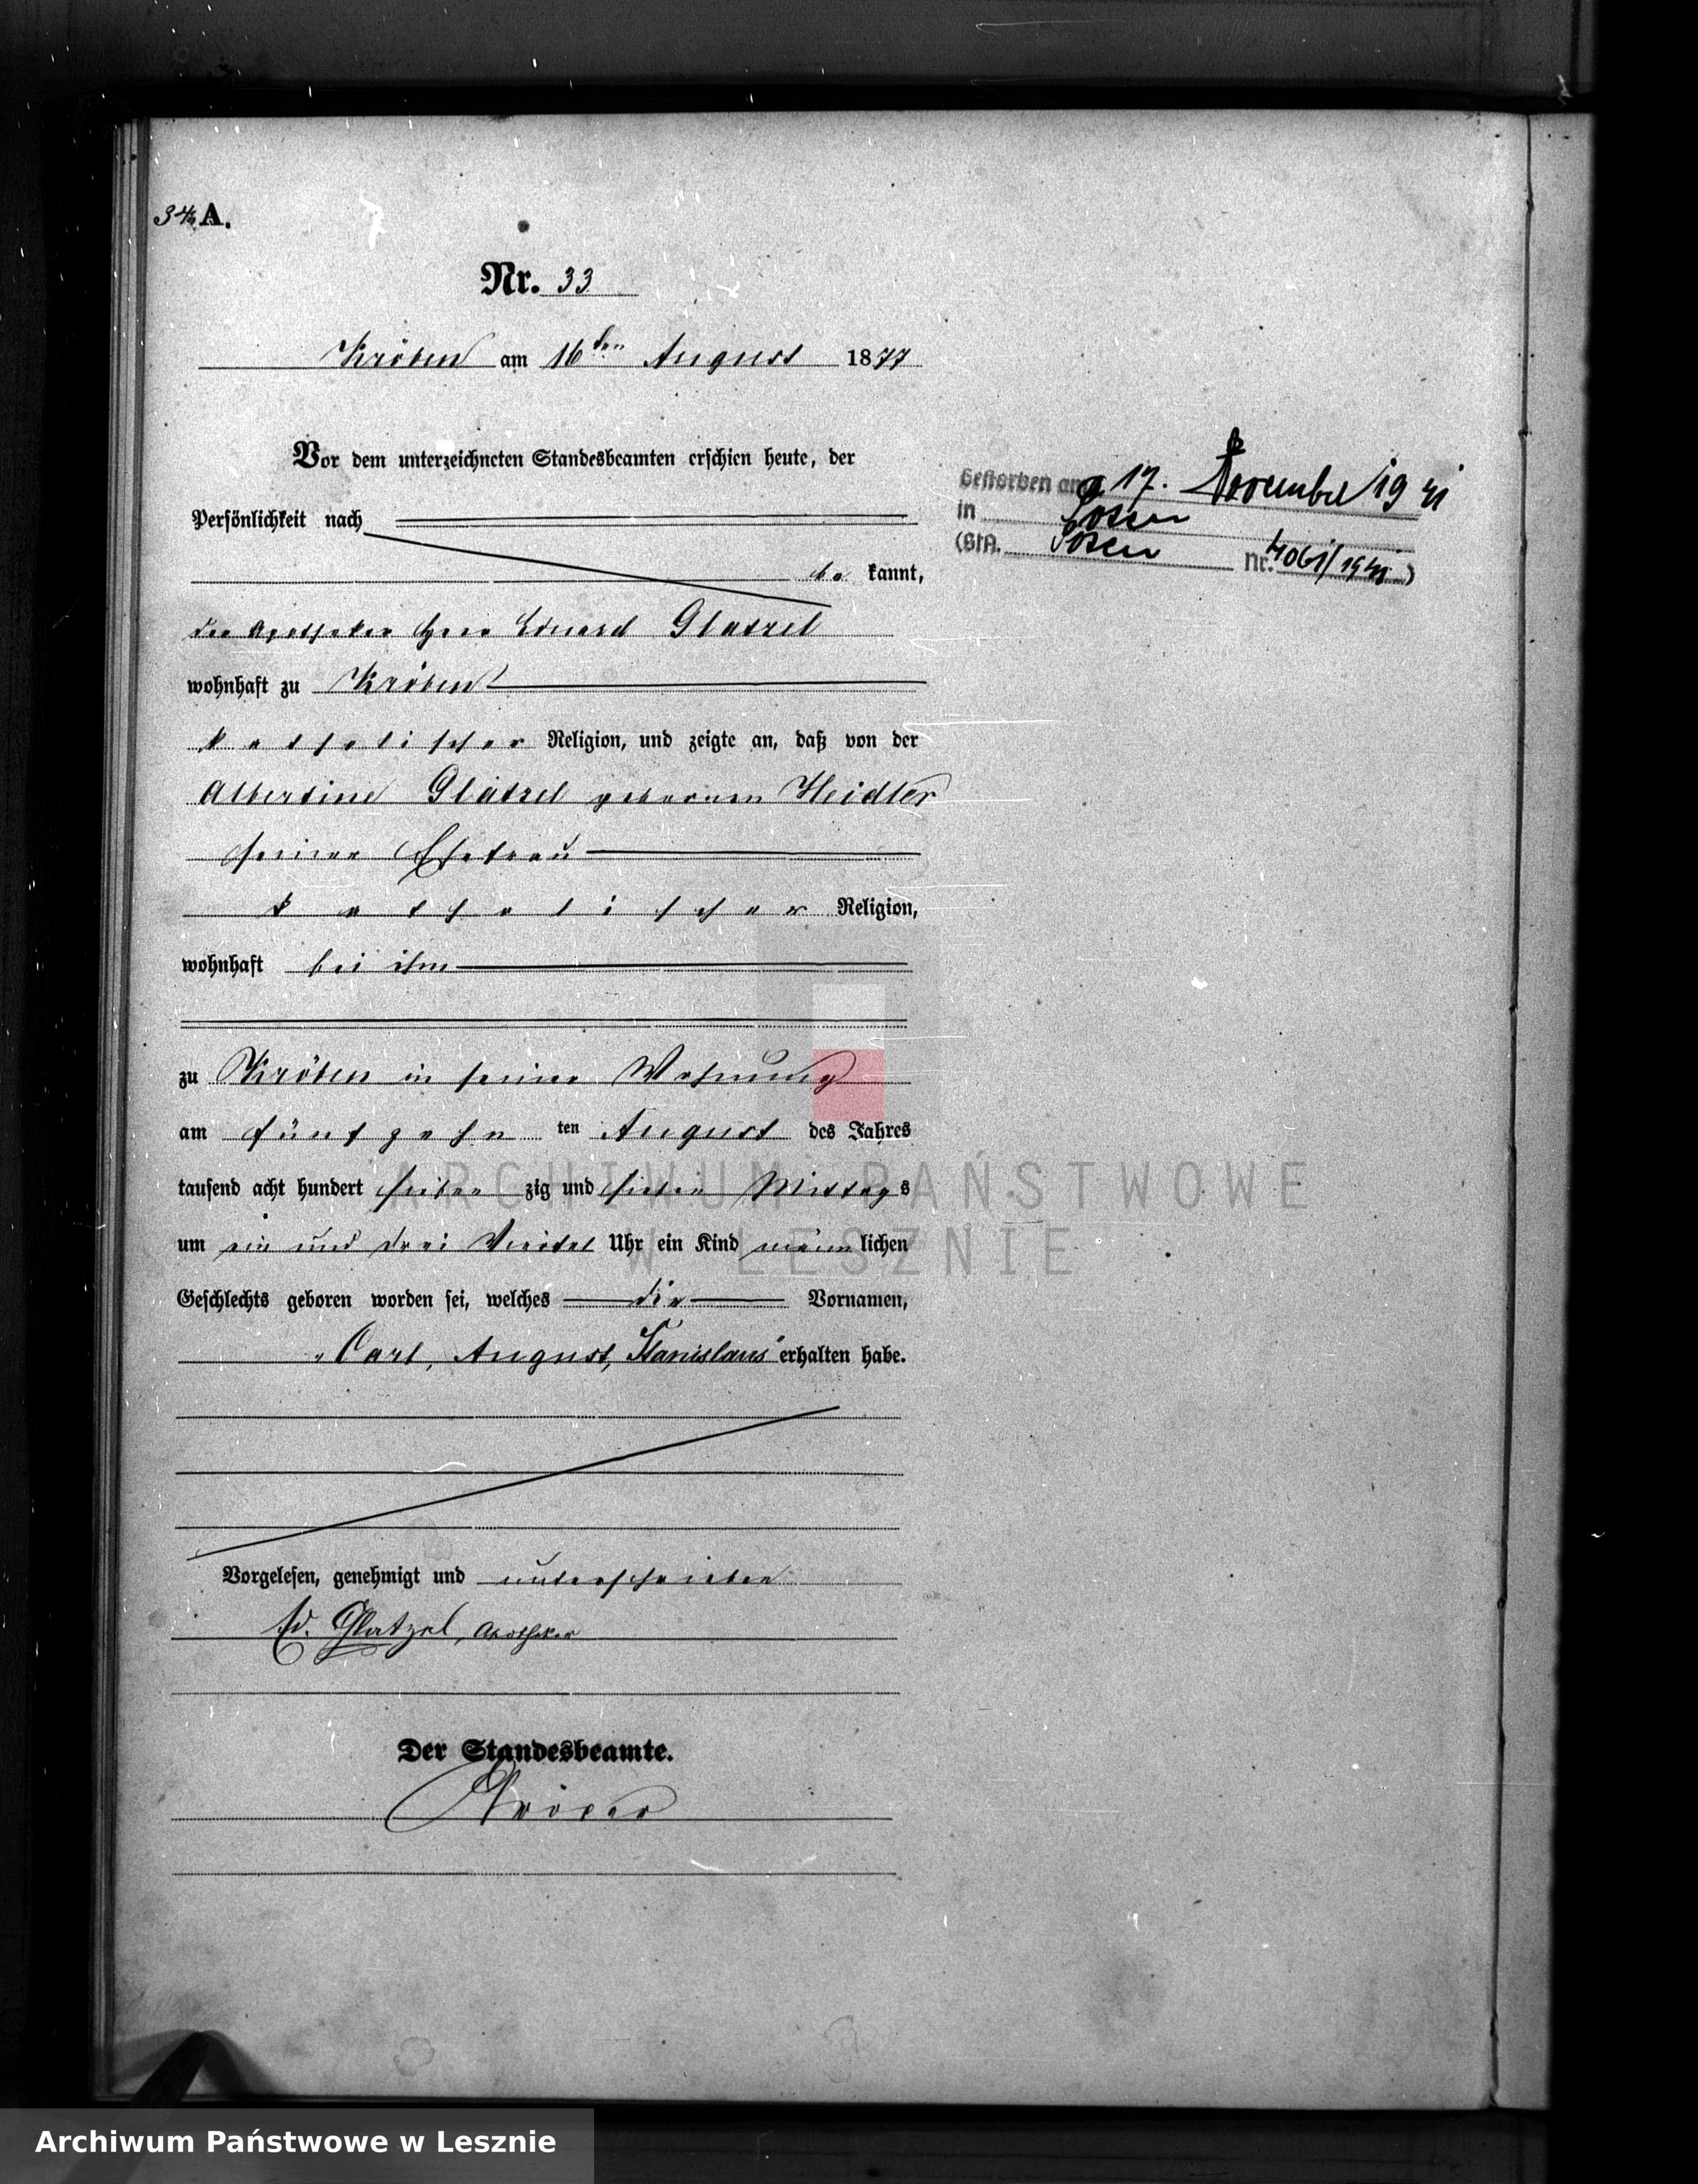 34 A.
Nr. 33
Kröben am 16ten August 1877
Vor dem unterzeichneten Standesbeamten erschien heute, der
Persönlichkeit nach
be kannt,
der Apotheker Herr Eduard Glatzel
wohnhaft zu Kröben
katholischer Religion, und zeigte an, daß von der
Albertine Glatzel geborenen Heidler
seiner Ehefrau
katholischer Religion,
wohnhaft bei ihm
zu Kröben in seiner Wohnung
am fünfzehn ten August des Jahres
tausend acht hundert sieben zig und sieben Mittag s
um ein und drei Viertel Uhr ein Kind männ lichen
Geschlechts geboren worden sei, welches die Vornamen,
"Carl, August, Stanislaus" erhalten habe.
Vorgelesen, genehmigt und unterschrieben
Ed. Glatzel, Apotheker
Der Standesbeamte.
Gestorben am 17. November 1941
in Posen
(StA. Posen Nr. 4061/1941)
ARCHIWUM PAŃSTWOWE
W LESZNIE
Archiwum Państwowe w Lesznie